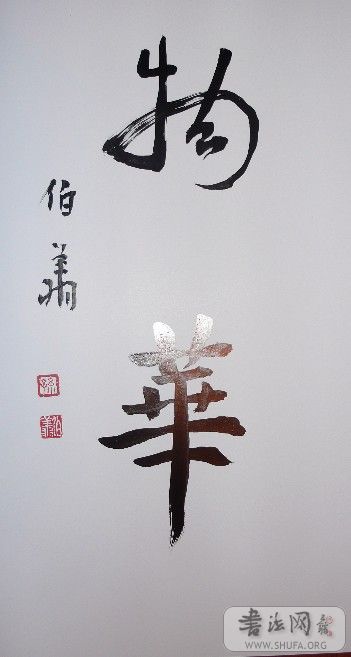 物華
伯翔
書法网
WWW.SHUFA.ORG